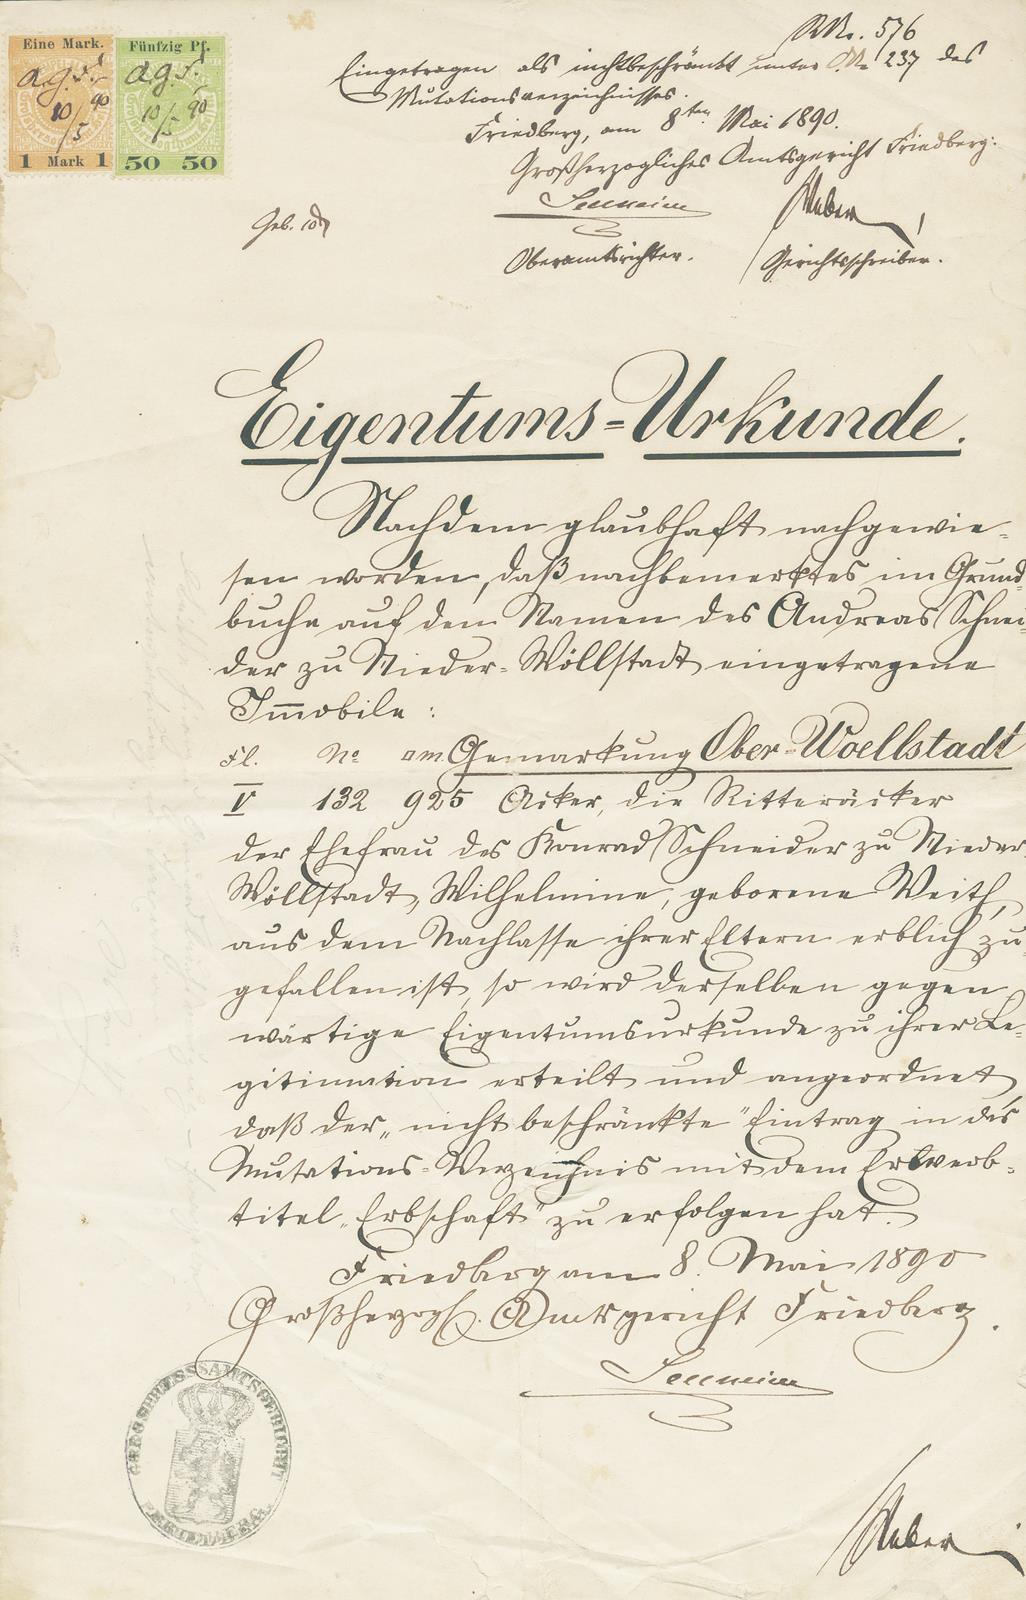 Eine Mark.
1 Mark 1
Fünfzig Pf.
50 50
10/5 90
10/5 90
RNr. 576
Eingetragen als nichtbeschränkt unter ON 237 des
Mutationsverzeichnisses.
Friedberg, am 8ten Mai 1890.
Großherzogliches Amtsgericht Friedberg.
Oberamtsrichter. Gerichtsschreiber.
Eigentums=Urkunde.
Nachdem glaubhaft nachgewie-
sen worden, daß nachbemerktes im Grund
buche auf den Namen des Andreas Schnei-
der zu Nieder-Wöllstadt eingetragene
Immobile:
Fl. No. qm Gemarkung Ober-Woellstadt
V 132 925 Acker, die Ritteräcker
der Ehefrau des Konrad Schneider zu Nieder-
Wöllstadt, Wilhelmine, geborene Veith,
aus dem Nachlasse ihrer Eltern erblich zu-
gefallen ist, so wird derselben gegen
wärtige Eigentumsurkunde zu ihrer Le-
gitimation erteilt und angeordnet
daß der „nicht beschränkte" Eintrag in das
Mutations-Verzeichnis mit dem Erwerb-
titel „Erbschaft" zu erfolgen hat.
Friedberg am 8. Mai 1890
Großherzogl. Amtsgericht Friedberg.
GROSSH. HESS. AMTSGERICHT
FRIEDBERG